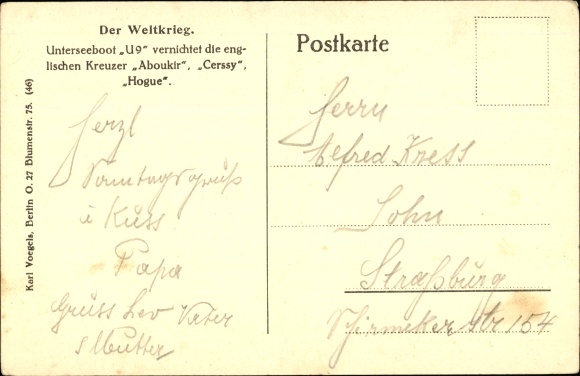 Der Weltkrieg.
Unterseeboot „U9“ vernichtet die eng-
lischen Kreuzer „Aboukir“, „Cerssy“,
„Hogue“.
Karl Voegels, Berlin O. 27 Blumenstr. 75. (46)
Herzl
Sonntagsgruß
u Kuss
Papa
Gruss Leo Vater
s Mutter
Postkarte
Herrn
Alfred Kness
Sohn
Straßburg
Schirmeker str 154